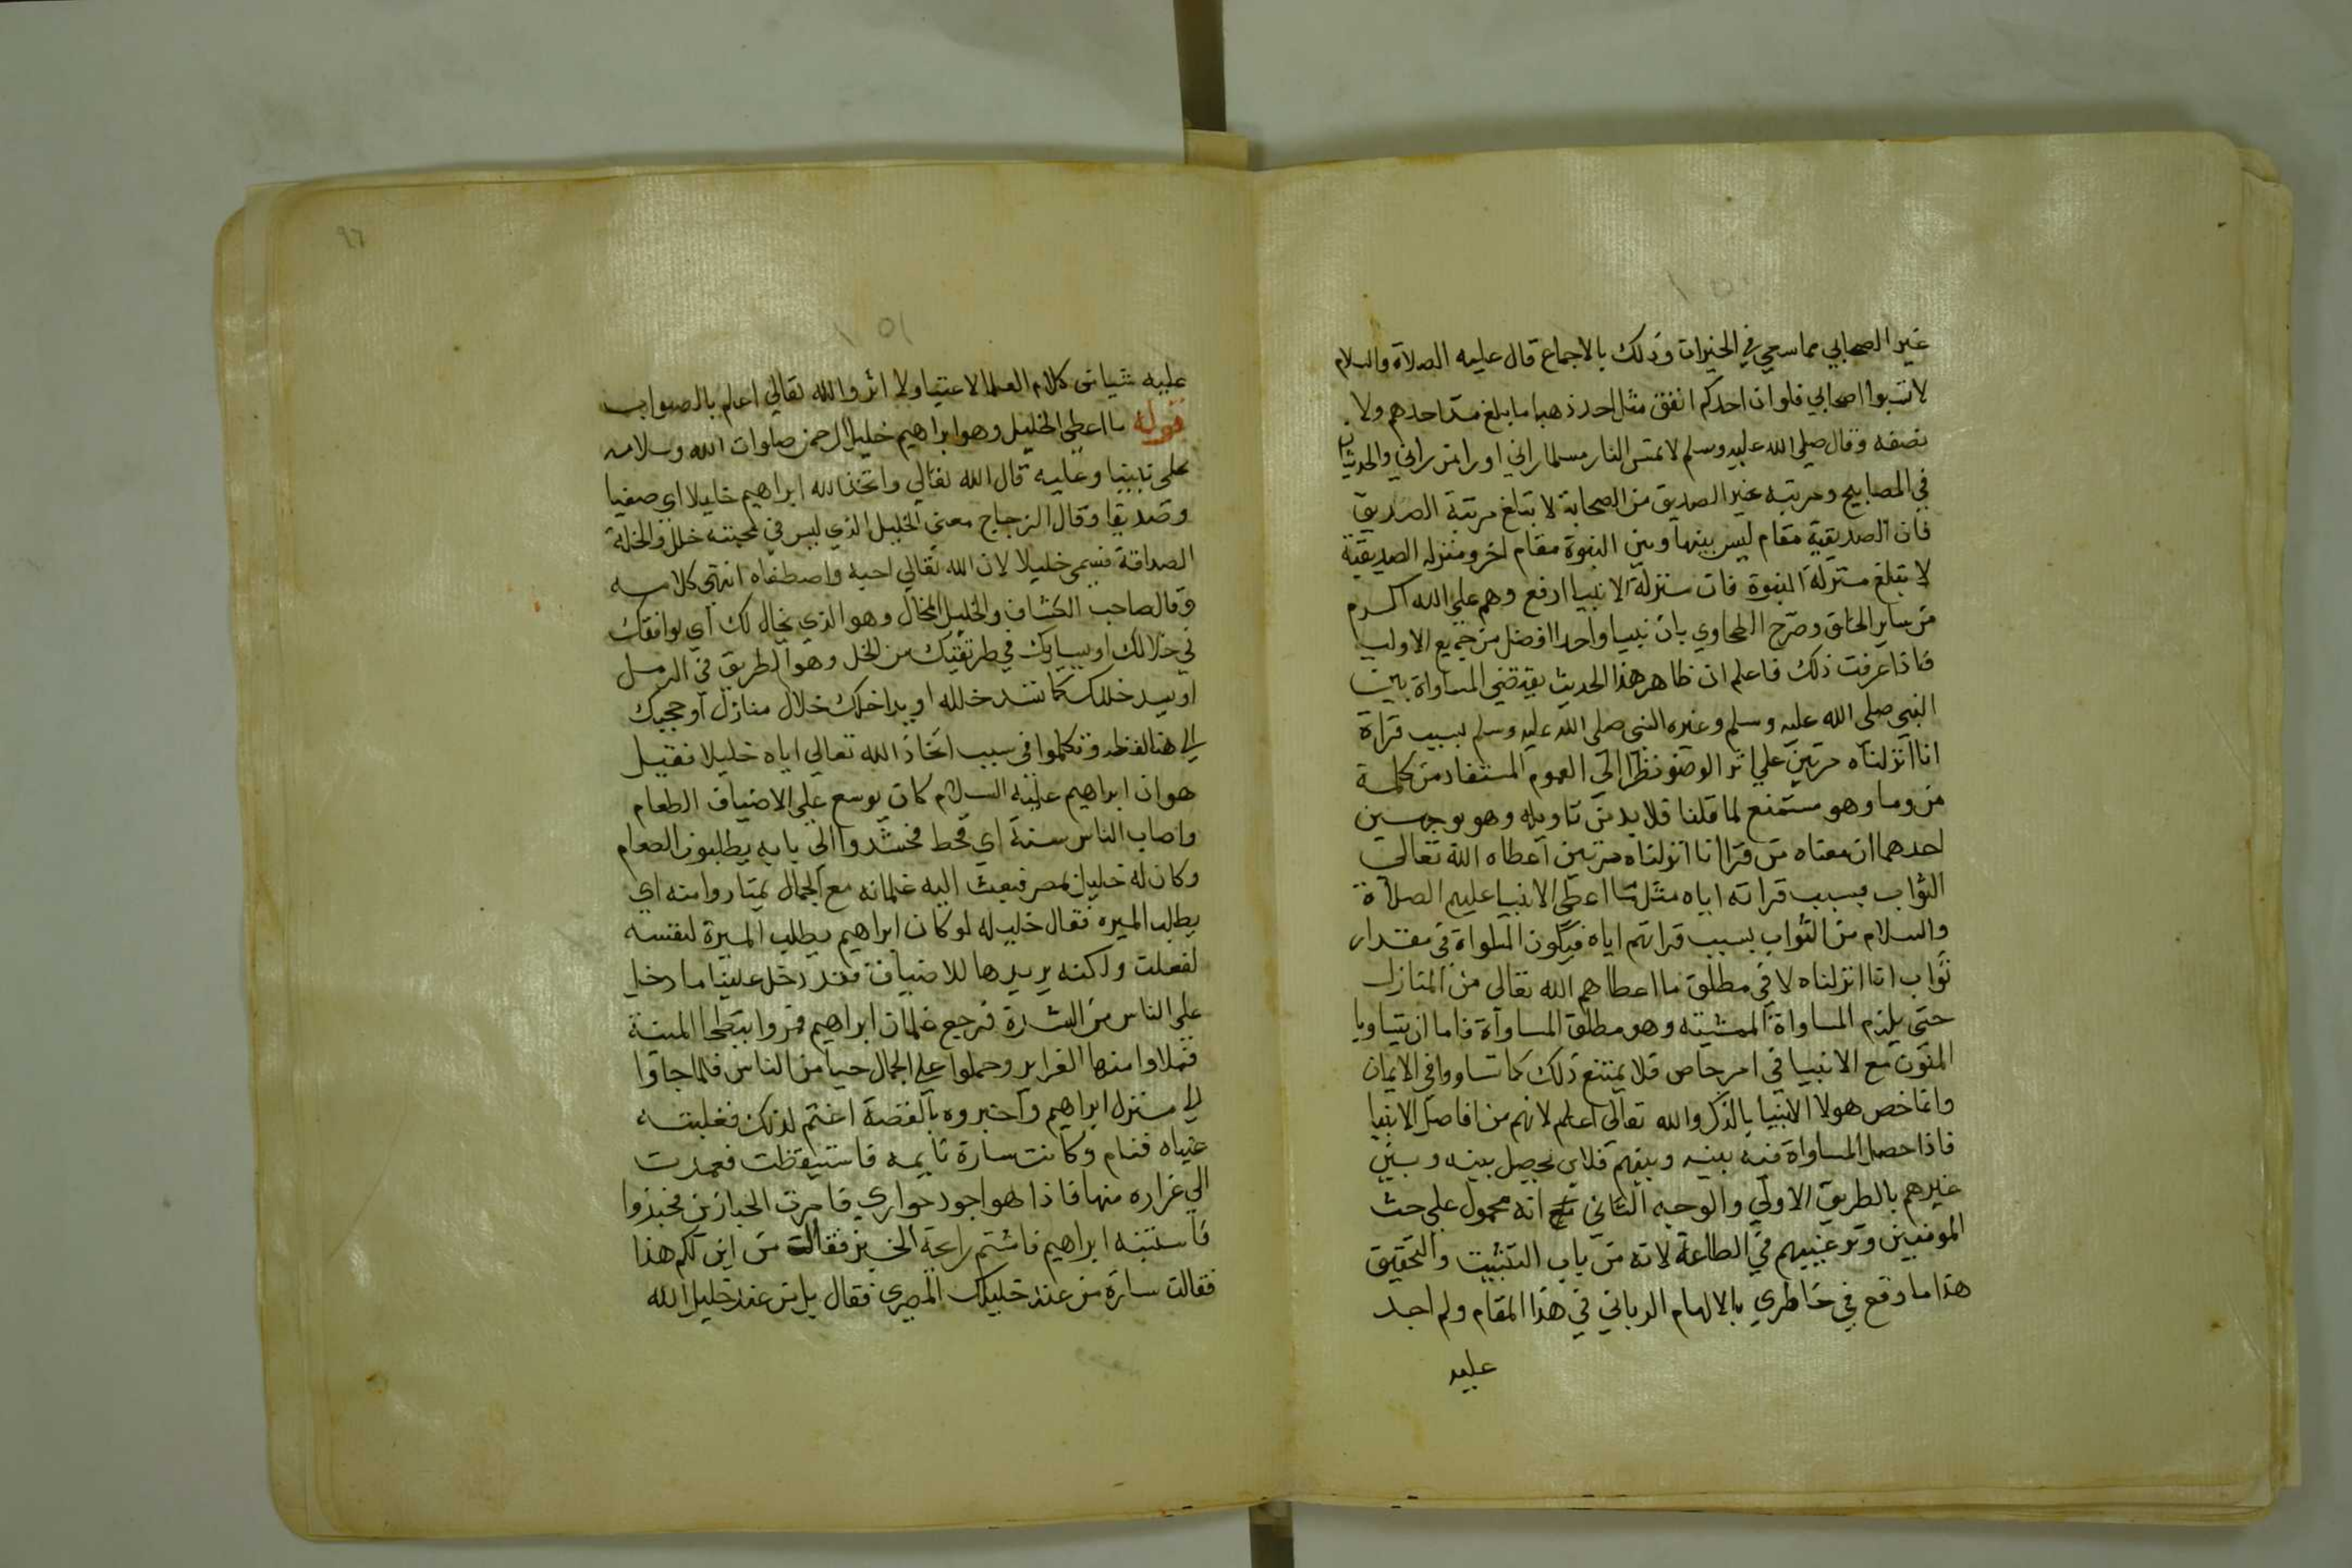 غير الصحابي مما سعي في الخيرات وذلك بالاجماع قال عليه الصلاة والسلام
لا تسبوا اصحابي فلو ان احدكم انفق مثل احد ذهبا ما بلغ مد احدهم ولا
نصفه وقال صلى الله عليه وسلم لا تمس النار مسلما راني او راى من راني والحديثان
في المصابيح ومرتبه غير الصديق من الصحابة لا تبلغ مرتبة الصديق
فان الصديقية مقام ليس بينها وبين النبوة مقام اخر ومنزله الصديقية
لا تبلغ منزلة النبوة فان منزلة الانبيا ارفع وهم علي الله اكرم
من ساير الخلق وصرح الطحاوي بان نبيا واحدا افضل من جميع الاوليا
فاذا عرفت ذلك فاعلم ان ظاهر هذا الحديث يقتضي المساواة بين
النبي صلى الله عليه وسلم وغيره النبي صلى الله عليه وسلم بسبب قراة
انا انزلناه مرتين علي اثر الوضو نظرا الي العموم المستفاد من كلمة
من وما وهو ممتنع لما قلنا فلا بد من تاويله وهو بوجهين
احدهما ان معناه من قرا انا انزلناه مرتين اعطاه الله تعالي
الثواب بسبب قراته اياه مثل ما اعطي الانبيا عليهم الصلاة
والسلام من الثواب بسبب قراتهم اياه فيكون المساواة في مقدار
ثواب انا انزلناه لا في مطلق ما اعطاهم الله تعالى من المنازل
حتي يلزم المساواة الممتنعة وهو مطلق المساواة فاما ان يتساويا
المومنون مع الانبيا في امر خاص فلا يمتنع ذلك كما تساووا في الايمان
وانما خص هولا الانبيا بالذكر والله تعالي اعلم لانهم من افاضل الانبيا
فاذا حصل المساواة فيه بينه وبينهم فلان يحصل بينه وبين
غيرهم بالطريق الاولي والوجه الثاني انه محمول علي حث
المومنين وترغيبهم في الطاعة لانه من باب التثبيت والتحقيق
هذا ما وقع في خاطري بالالهام الرباني في هذا المقام ولم اجد
عليه
٩٦
١٥١
عليه شيا من كلام العلما لا عينا ولا اثر والله تعالي اعلم بالصواب
قوله ما اعطي الخليل وهو ابراهيم خليل الرحمن صلوات الله وسلامه
على نبينا وعليه قال الله تعالي واتخذ الله ابراهيم خليلا اي صفيا
وصديقا وقال الزجاج معنى الخليل الذي ليس في محبته خلل والخلة
الصداقة فسمي خليلا لان الله تعالي احبه واصطفاه انتهي كلامه
وقال صاحب الكشاف والخليل المخال وهو الذي يخالك اي يوافقك
في خلالك او يسايرك في طريقتك من الخل وهو الطريق في الرمل
او يسد خللك كما تسد خلله او يداخلك خلال منازلك وحجبك
الي هنا لفظه وتكلموا في سبب اتخاذ الله تعالي اياه خليلا فقيل
هو ان ابراهيم عليه السلام كان يوسع علي الاضياف الطعام
واصاب الناس سنة اي قحط فحشدوا الي بابه يطلبون الطعام
وكان له خليل بمصر فبعث اليه غلمانه مع الجمال يمتاروا منه اي
يطلب الميره فقال خليله لو كان ابراهيم يطلب الميرة لنفسه
لفعلت ولكنه يريدها للاضياف فقد دخل علينا ما دخل
علي الناس من الشدة فرجع غلمان ابراهيم فمروا ببطحا لينة
فملاوا منها الغراير وحملوا علي الجمال حيا من الناس فلما جاوا
الي منزل ابراهيم واخبروه بالقصة اغتم لذلك فغلبته
عيناه فنام وكانت سارة نايمه فاستيقظت فعمدت
الي غراره منها فاذا هو اجود حواري فامرت الخبازين فخبزوا
فاستنبه ابراهيم فاشتم رايحة الخبز فقال من اين لكم هذا
فقالت سارة من عند خليلك المصري فقال بل من عند خليل الله